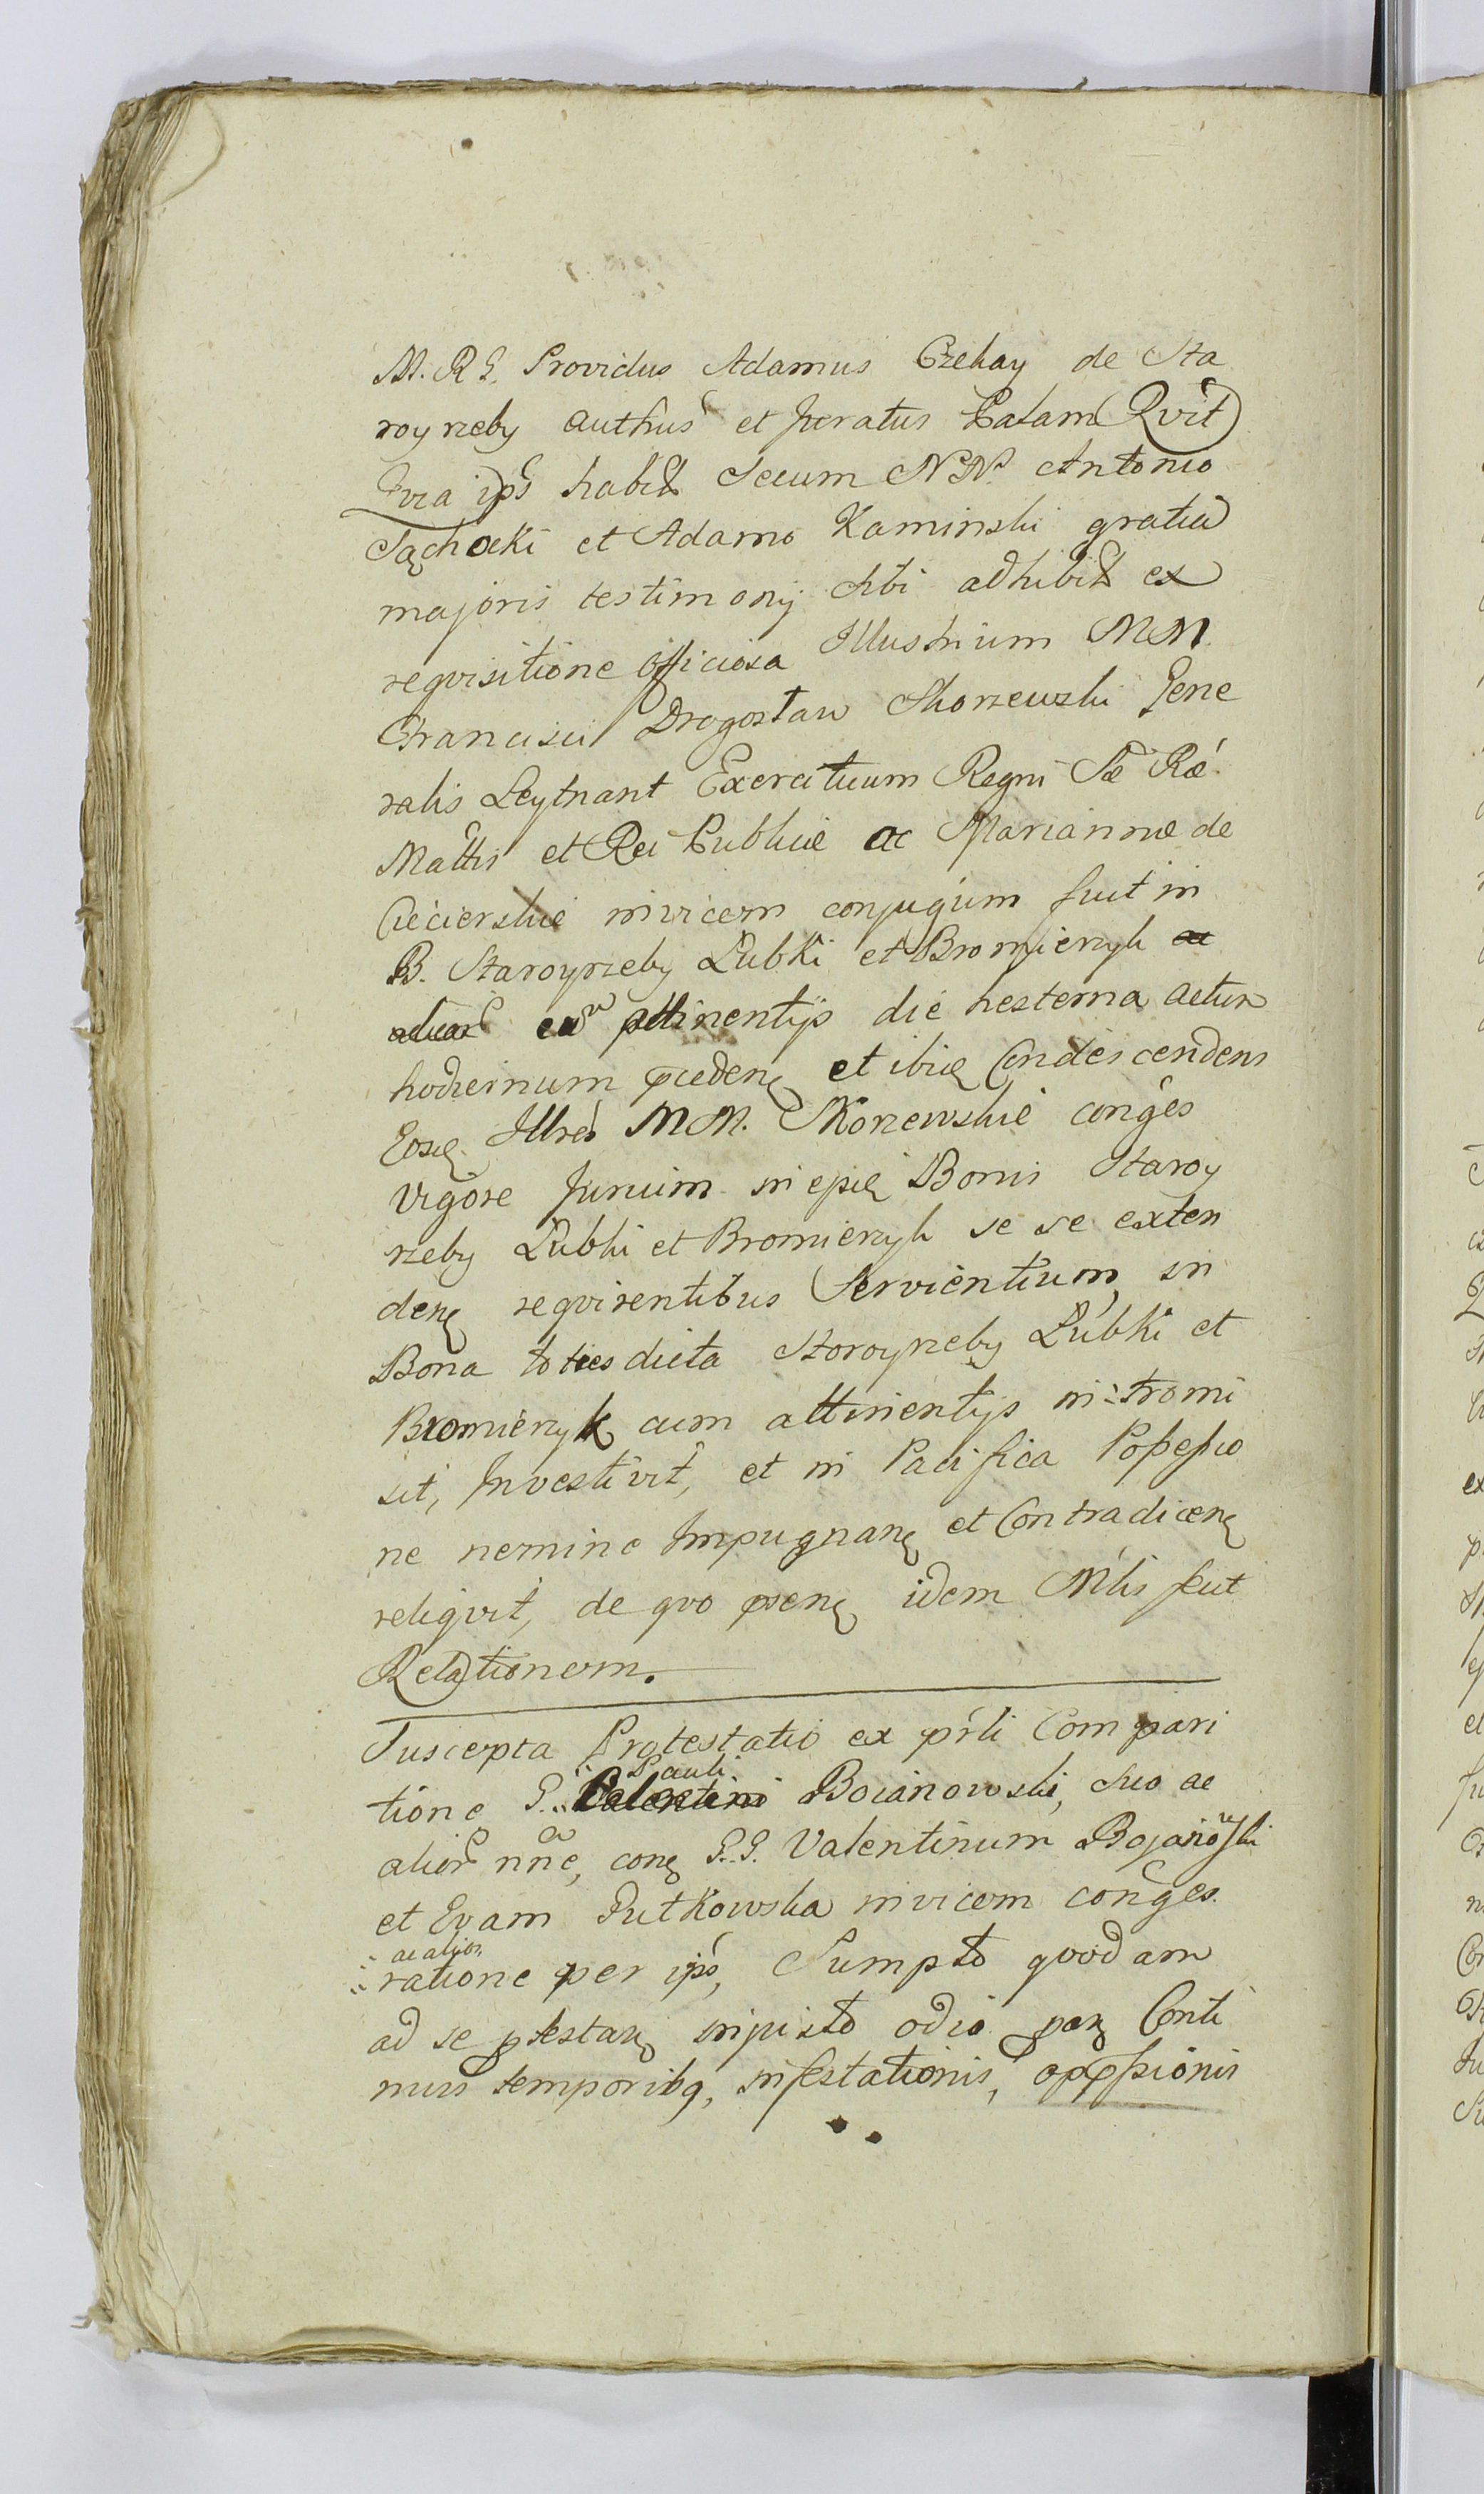 M. R G. Providus Adamus Czekay de Sta
royrzeby authus et Juratus Palam Qvit
Qvia ips habit Secum NN. Antonio
Sąchocki et Adamo Kaminski gratia
majoris testimonij Sibi adhibit ex
reqvisitione officiosa Illustrium MM.
Francisci Drogosław Skorzewski Gene
ralis Leytnant Exercituum Regni Sæ Ræ
Mattis et Rei Publicæ ac Mariannæ de
Ciecierskie invicem conjugum fuit in
B. Staroyrzeby Lubki et Bromierzyk ac
eis attinentijs die hesterna actum
hodiernum præceden et ibiq Condescendens
Eosq Illres MM. Skorzewskie conges
vigore Jurium in epiq Bonis Staroy
rzeby Lubki et Bromierzyk se se exten
den reqvirentibus Servientium, in
Bona toties dicta Staroyrzeby Lubki et
Bromierzyk cum attinentijs in:tromi
sit, Investivit, et in Pacifica Possessio
ne nemine Impugnan et Contradicen
reliqvit, de qvo præsen idem Mlis fecit
Relationem.
Suscepta Protestatio ex prli Compari
Pauli
tione G. Valentini Boianowski, Suo ac
alior nne, con G.G. Valentinum Bojanowski
et Evam Rutkowska invicem conges.
ac alior
ratione per ips, Sumpto qvodam
ad se ptestan injusto odio pan Conti
nuis temporibq, infestationis, oppssionis